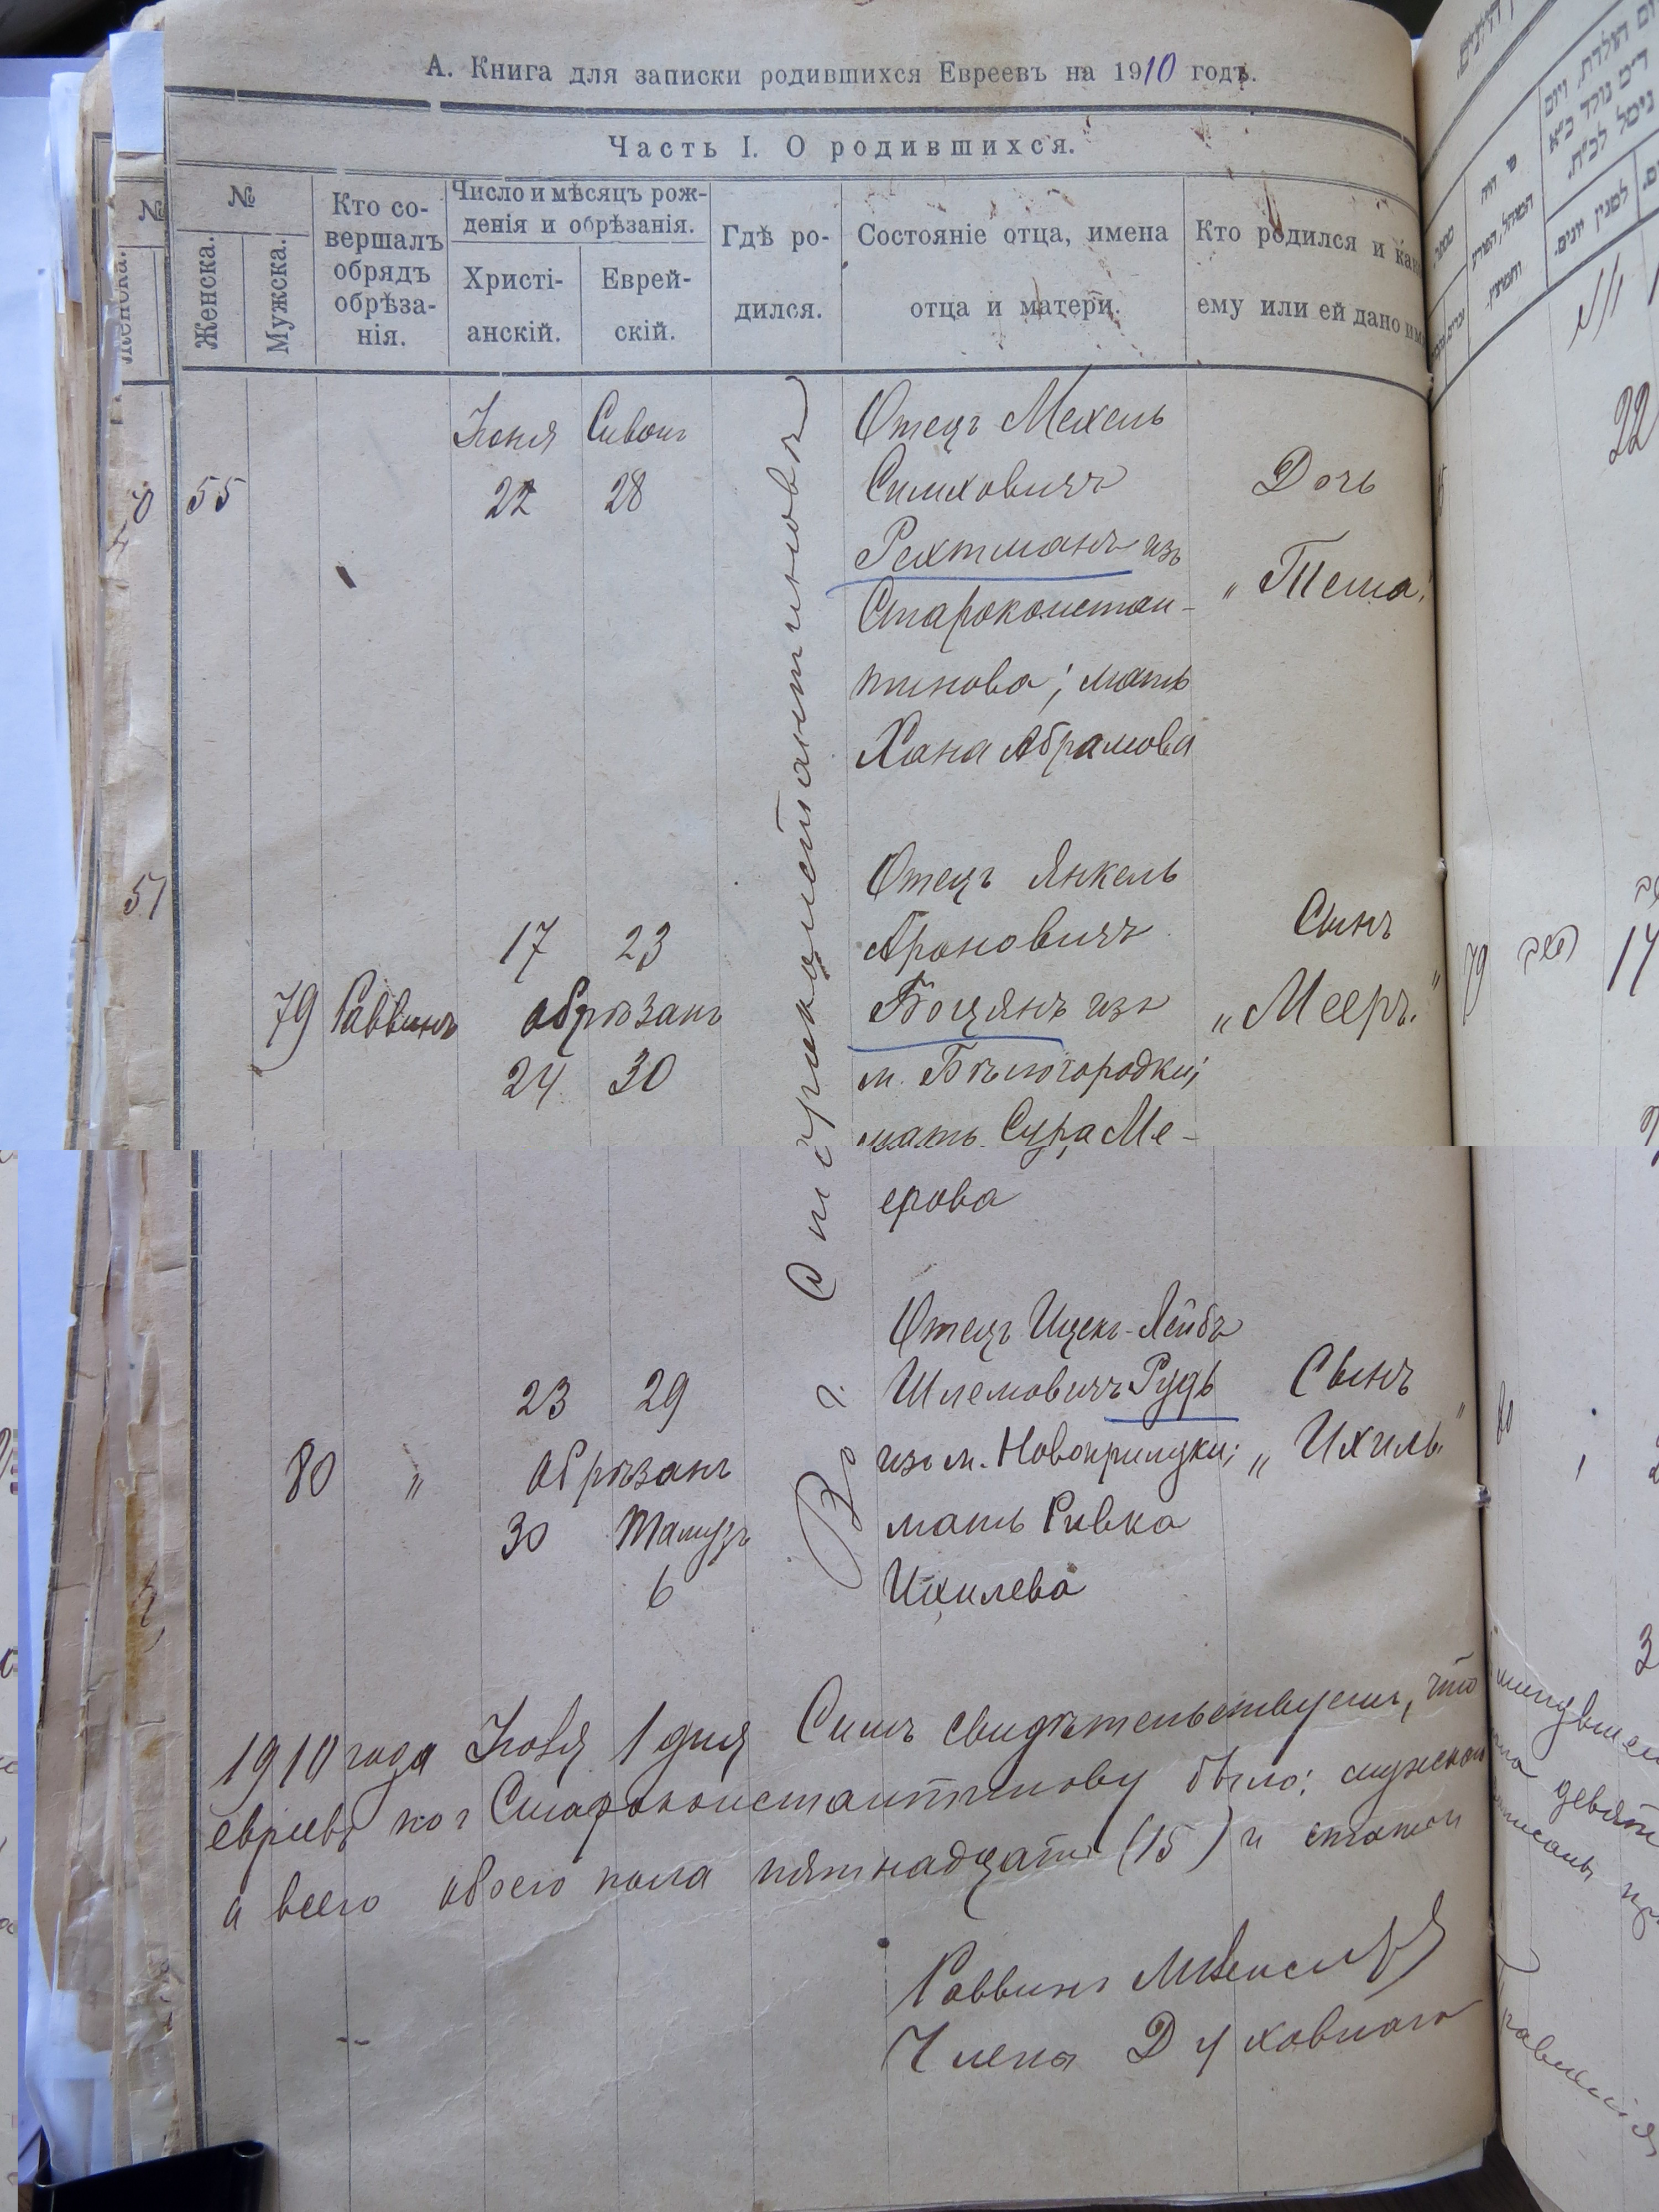 А. Книга для записки родившихся Евреевъ на 1910 годъ.
Часть I. О родившихся.
№
№
Женска.
Мужска.
Кто со-
вершалъ
обрядъ
обрѣза-
нія.
Число и мѣсяцъ рож-
денія и обрѣзанія.
Христі-
анскій.
Еврей-
скій.
Гдѣ ро-
дился.
Состояніе отца, имена
отца и матери.
Кто родился и как
ему или ей дано им
Въ г. Староконстантиновъ
Іюня Сивонъ
55
22 28
Отецъ Мехель
Симховичъ
Рехтманъ изъ
Староконстан-
тинова; мать
Хана Абрамова
Дочь
„Тема"
51
17 23
79 Раввинъ обрѣзанъ
24 30
Отецъ Янкель
Ароновичъ
Боцянъ изъ
м. Бѣлогородки;
мать Сура Ме-
ерова
Сынъ
„Мееръ."
23 29
80 „ обрѣзанъ
30 Тамузъ
6
Отецъ Ицекъ-Лейбъ
Шлемовичъ Рудь
изъ м. Новоприлуки;
мать Ривка
Ихилева
Сынъ
„Ихиль"
1910 года Іюля 1 дня Симъ свидѣтельствуемъ, что
евреевъ по г Староконстантинову было: мужской
а всего обоего пола пятнадцать (15) и
Раввинъ
Члены Духовнаго
79
17
22